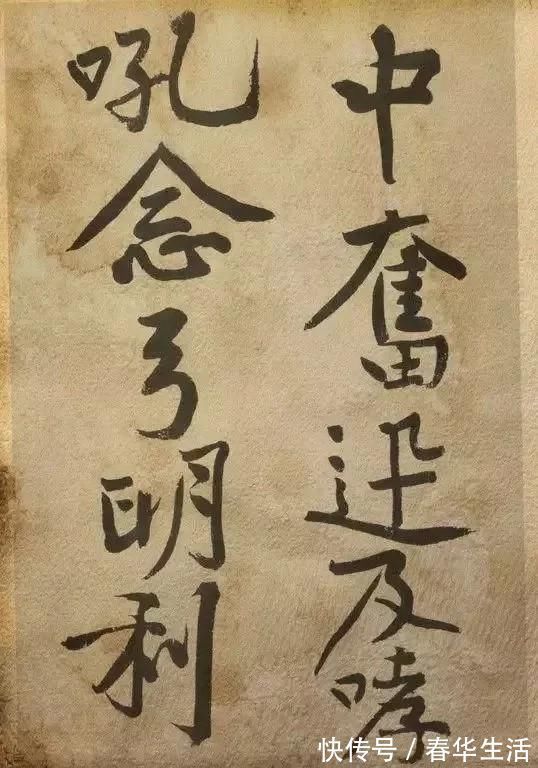 中奮迅及哮
吼念弓明利
快传号 / 春华生活